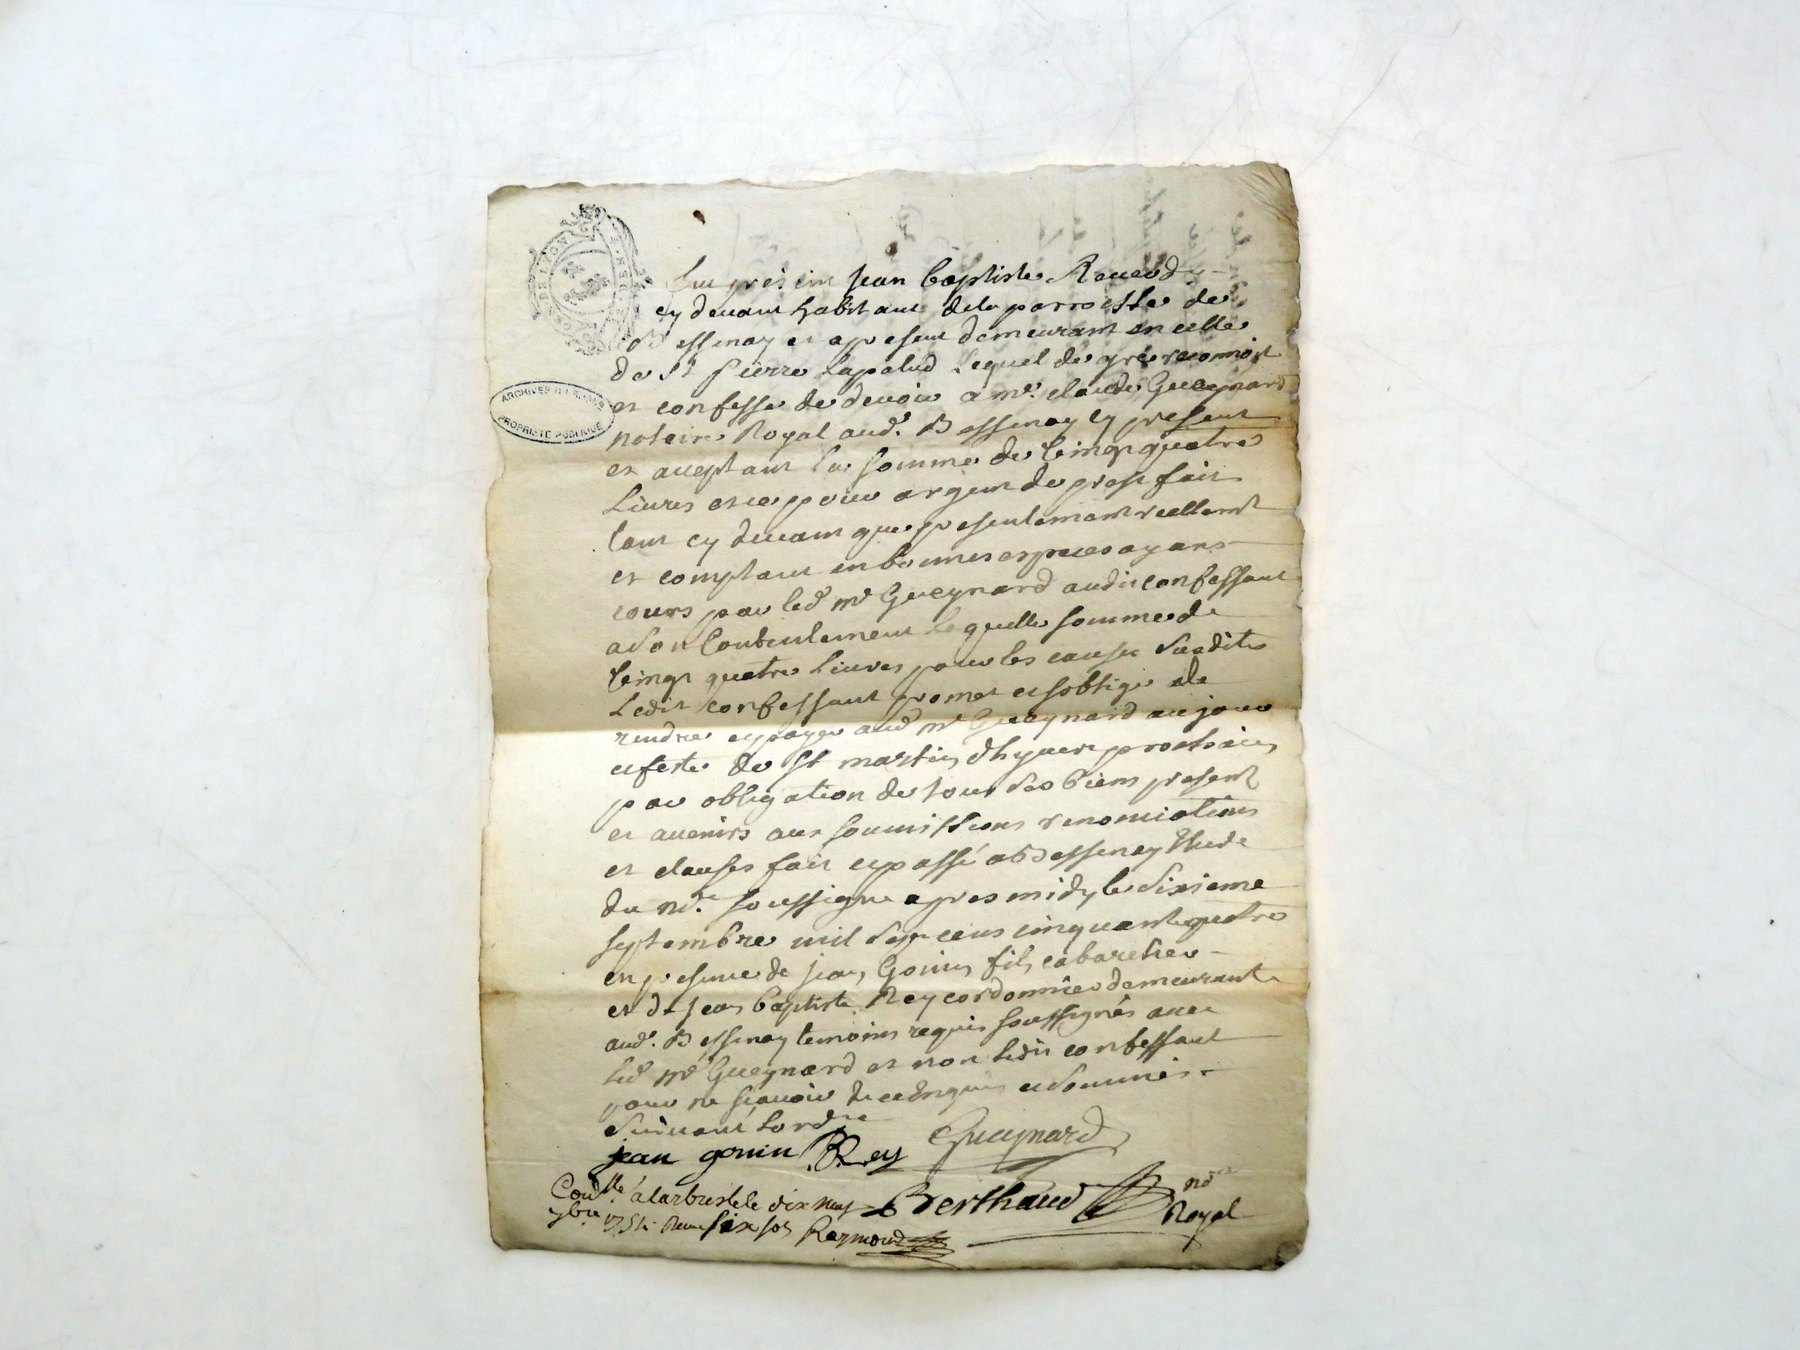 GEN DE LYON
ARCHIVES
PROPRIÉTÉ PUBLIQUE
fut présent Jean baptiste
cy devant habitant dela parroisse de
Bessenay et apresent demeurant en celle
de St pierre Lapalud Lequel de gré reconnoit
et confesse de devoir a me. claude Gueynard
notaire Royal aud. Bessenay cy present
et aceptant La somme de Cingt quatre
Livres et ce pour argent de prest fait
tant cy devant que presentement reellement
et comptant en bonnes especes ayant
cours par led me Gueynard audit confessant
a son Contentement Laquelle somme de
Cingt quatre Livres pour les causes susdites
Ledit confessant promet et soblige de
rendre et payer aud me Gueynard au jour
et feste de St martin dhyver prochain
par obligation de tous ses biens present
et avenirs aux soumissions renonciations
et clauses fait et passé a Bessenay Etude
du nre. soussigné apres midy le sixieme
septembre mil sept cens cinquante quatre
en presence de jean Gonin fils cabaretier
et de Jean baptiste Rey cordonnier demeurant
aud. Bessenay temoins requis soussignés avec
led me Gueynard et non Ledit confessant
pour ne scavoir de ce enquis et sommés
suivant Lordre
jean gonin BRey Gueynard
Conllé a larbresle le dix neuf Berthaud nore Royal
7bre 1754 Recu six sols Raymond